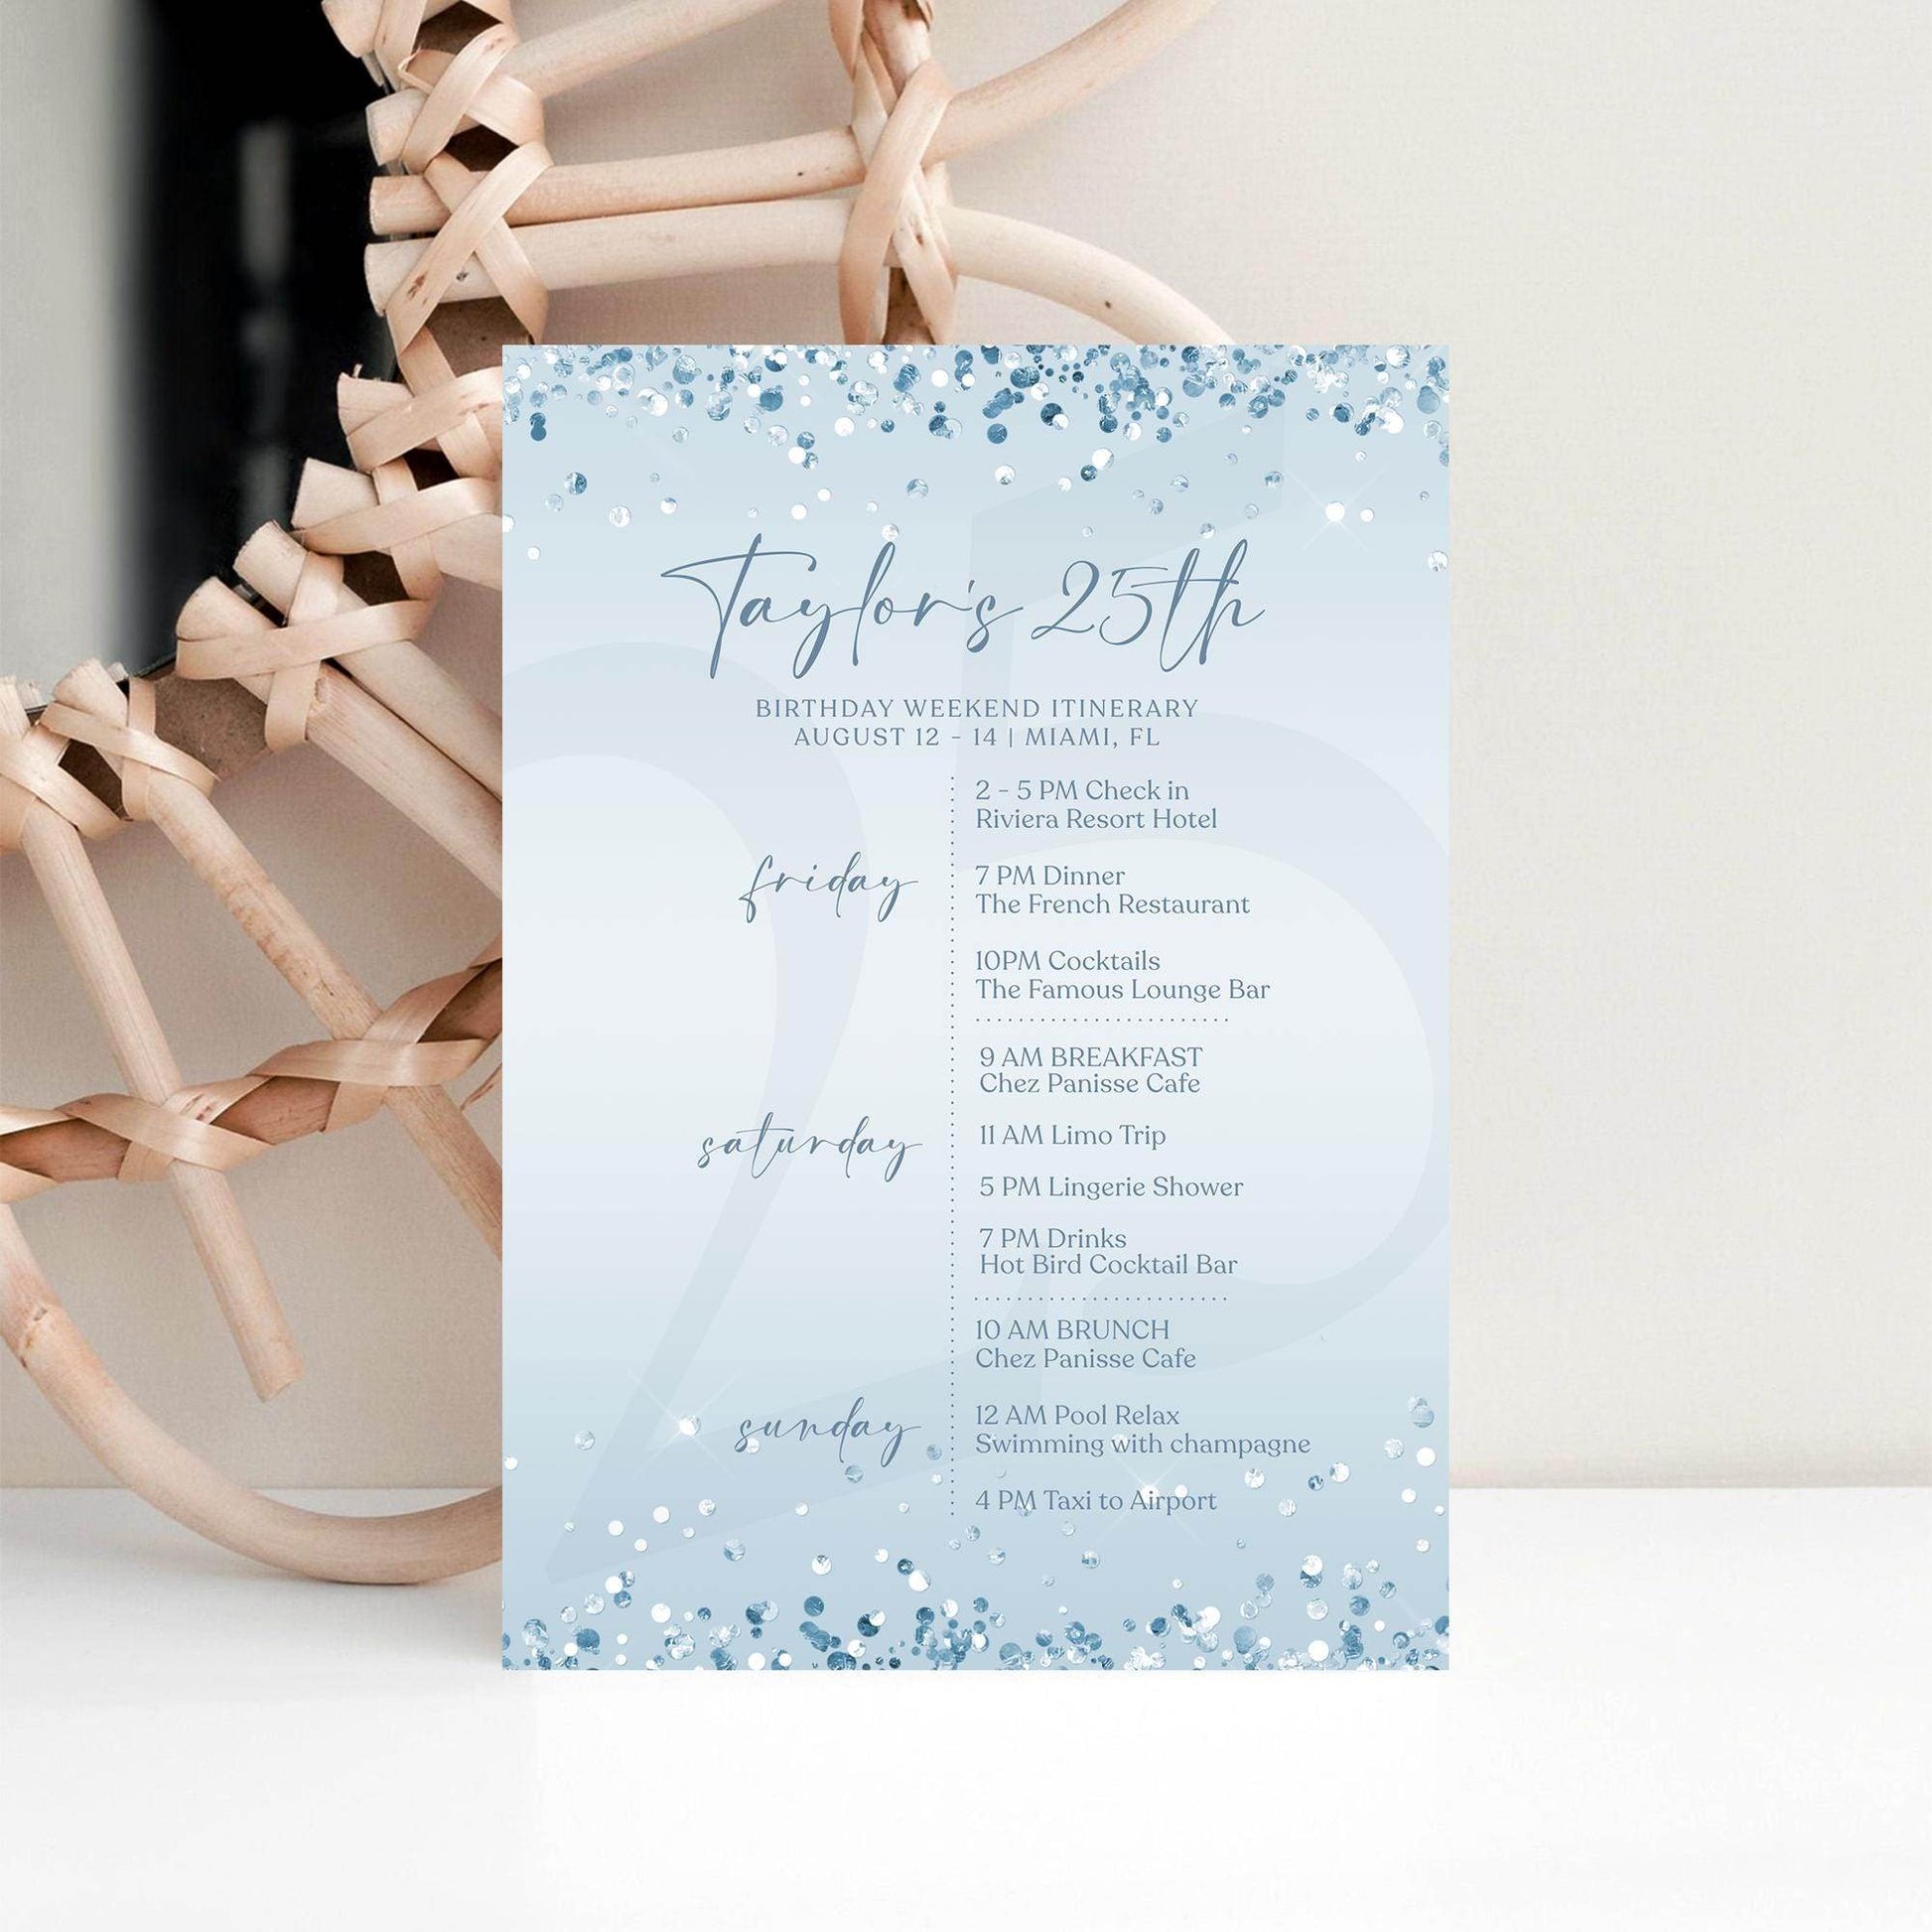 Taylor's 25th
BIRTHDAY WEEKEND ITINERARY
AUGUST 12 - 14 | MIAMI, FL
friday
2 - 5 PM Check in
Riviera Resort Hotel
7 PM Dinner
The French Restaurant
10PM Cocktails
The Famous Lounge Bar
saturday
9 AM BREAKFAST
Chez Panisse Cafe
11 AM Limo Trip
5 PM Lingerie Shower
7 PM Drinks
Hot Bird Cocktail Bar
sunday
10 AM BRUNCH
Chez Panisse Cafe
12 AM Pool Relax
Swimming with champagne
4 PM Taxi to Airport
25